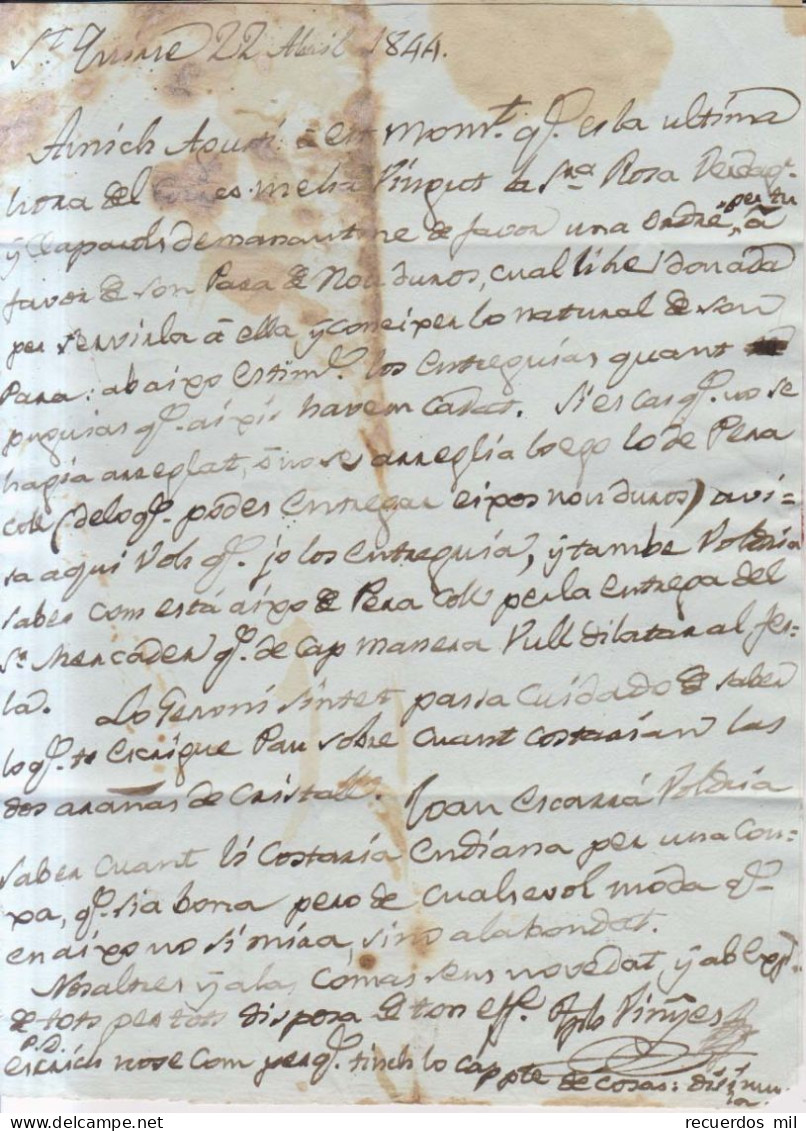 St. Quirse 22 Abril 1844.
Amich Agusti: á est moment. q.e es la ultima
hora del es me ha Vingut la Sra Rosa Verdagr.
y Capaols demanantme de favor una Ordre, per tu á
favor de son Para de Nou duros, cual li he donada
per servirla á ella, y coneixer lo natural de son
Para: abaixo estimr. los entreguias quant
puguias q.e aixis havem Cadat. Si es cas q.e no se
hagia arreglat, ó no se arreglia luego lo de Pera
Coll (de lo q.e podes entregar eixos nou duros) avi-
sa aqui Vols q.e jo los entreguia, y tambe Voldria
saber com está aixo de Pera Coll per la entrega del
Sr. Mercader q.e de Cap manera Vull dilatar al fer-
la. Lo Geroni Sintet passa cuidado de saber
lo q.e te escrigue Pau sobre cuant costarian las
dos arañas de Cristall. Joan Escarrá Voldria
saber cuant li Costaria Endiana per una Con-
xa, q.e sia bona pero de cualsevol moda q.e
en aixo no si mira, sino a la bondat.
Nosaltres y a las Comas sens novedat, y ab exp.s
de tots per tots disposa de ton aff. Viñyes
P.D.
escrich nose com perq.e tinch lo cap ple de cosas: disimu-
la.
recuerdos mil